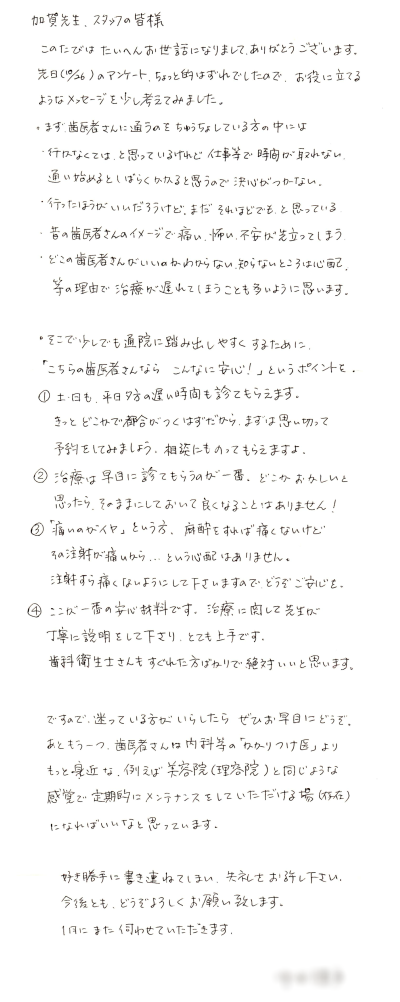 加賀先生、スタッフの皆様
このたびは たいへんお世話になりまして、ありがとうございます。
先日(10/26)のアンケート、ちょっと的はずれでしたので、お役に立てる
ようなメッセージを少し考えてみました。
・まず、歯医者さんに通うのをちゅうちょしている方の中には
・行かなくては、と思っているけれど 仕事等で時間が取れない、
通い始めるとしばらくかかると思うので 決心がつかない。
・行ったほうがいいだろうけど、まだ それほどでも、と思っている
・昔の歯医者さんのイメージで痛い、怖い、不安が先立ってしまう、
・どこの歯医者さんがいいのかわからない、知らないところは心配、
等の理由で 治療が遅れてしまうことも多いように思います。
・そこで少しでも通院に踏み出しやすくするために、
「こちらの歯医者さんなら こんなに安心!」というポイントを。
① 土・日も、平日夕方の遅い時間も診てもらえます。
きっと どこかで都合がつくはずだから、まずは思い切って
予約をしてみましょう、相談にものってもらえますよ、
② 治療は早目に診てもらうのが一番、どこかおかしいと
思ったら、そのままにしておいて良くなることはありません!
③ 「痛いのがイヤ」という方、麻酔をすれば痛くないけど
その注射が痛いから… という心配はありません。
注射すら痛くないようにして下さいますので、どうぞご安心を、
④ ここが一番の安心材料です。治療に関して先生が
丁寧に説明をして下さり、とても上手です。
歯科衛生士さんもすぐれた方ばかりで絶対いいと思います。
ですので、迷っている方がいらしたら ぜひお早目にどうぞ。
あともう一つ、歯医者さんは内科等の「かかりつけ医」より
もっと身近な、例えば美容院(理容院)と同じような
感覚で定期的にメンテナンスをしていただける場(存在)
になればいいなと思っています。
好き勝手に書き連ねてしまい、失礼をお許し下さい、
今後とも、どうぞよろしくお願い致します。
1月にまた伺わせていただきます。